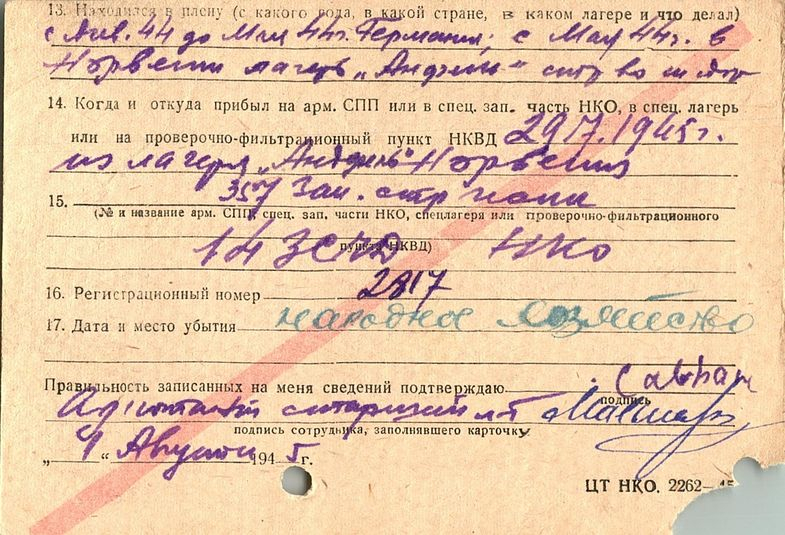 13. Находился в плену (с какого года, в какой стране, в каком лагере и что делал)
с Янв. 44 до Мая 44г. Германия; с Мая 44г. в
Норвегии лагерь
14. Когда и откуда прибыл на арм. СПП или в спец. зап. часть НКО, в спец. лагерь
или на проверочно-фильтрационный пункт НКВД 1945г.
из лагеря Норвегия
15. 357 Зап. стр полк
(№ и название арм. СПП, спец. зап. части НКО, спецлагеря или проверочно-фильтрационного
пункта НКВД)
14 ЗСКД НКО
16. Регистрационный номер 2817
17. Дата и место убытия народное хозяйство
Правильность записанных на меня сведений подтверждаю
подпись
Адъютант старший л-т
подпись сотрудника, заполнявшего карточку
„1“ Августа 1945г.
ЦТ НКО. 2262—45